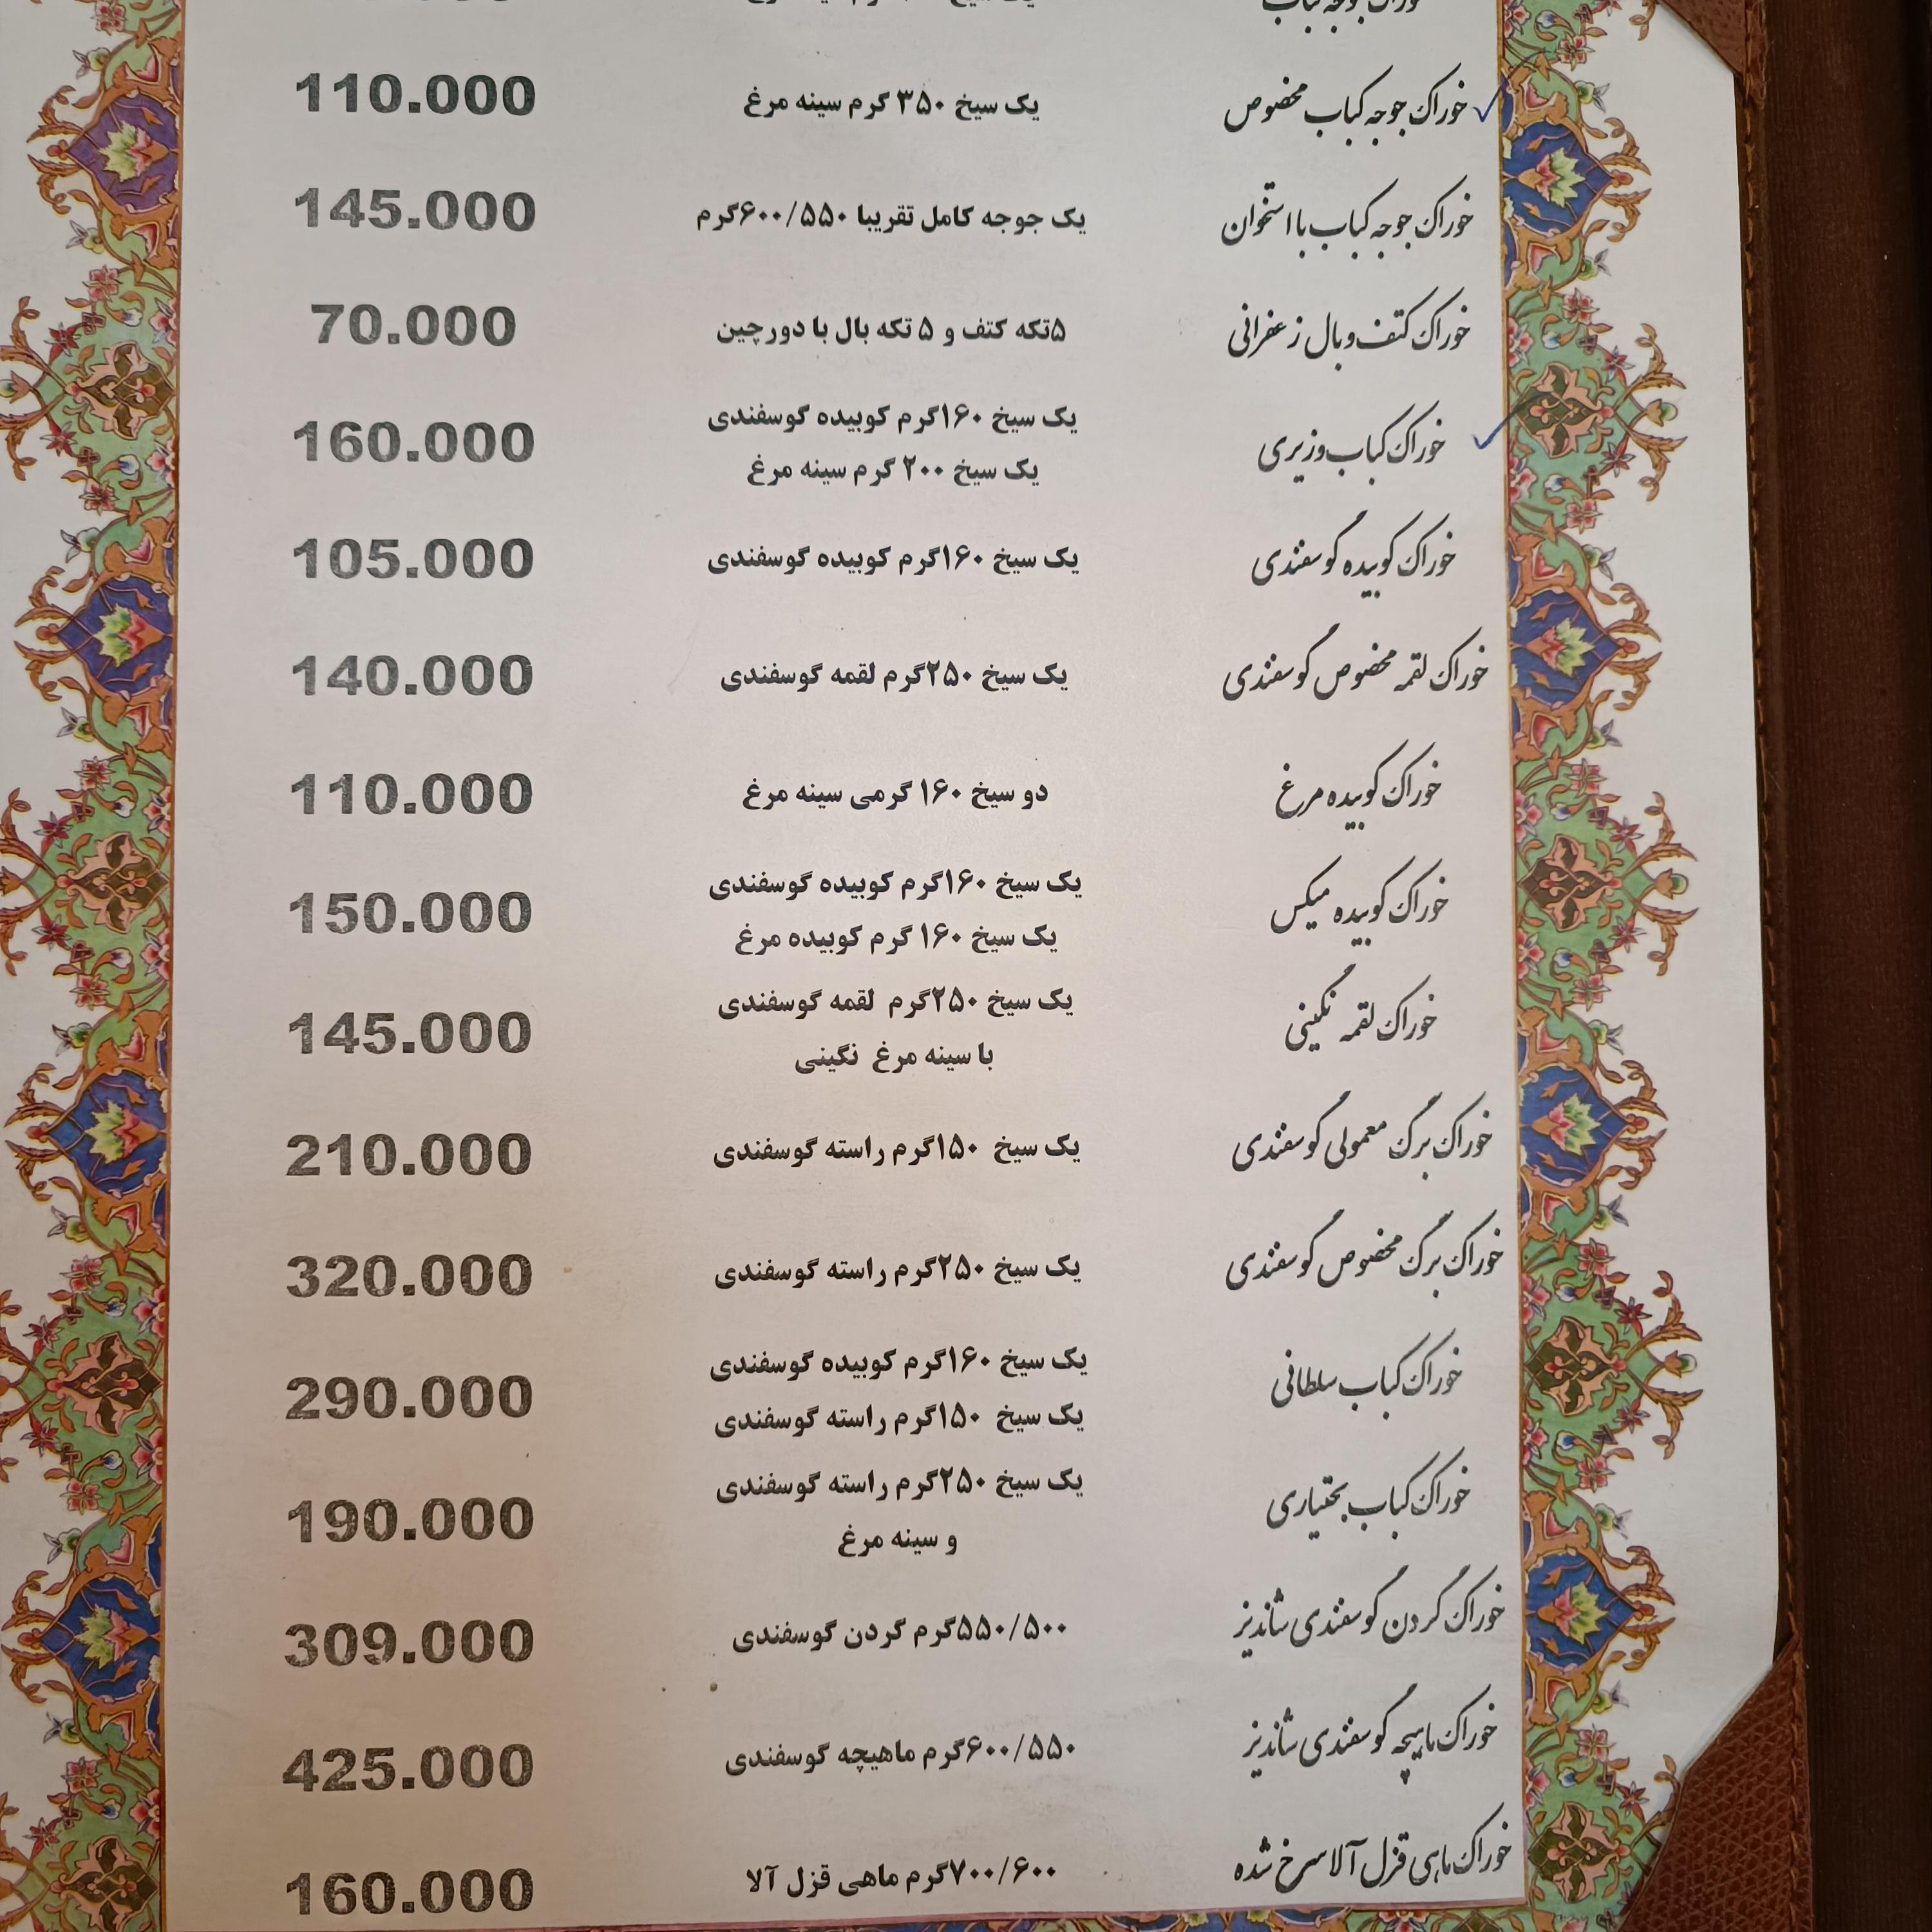 خوراک جوجه کباب
خوراک جوجه کباب مخصوص یک سیخ ۳۵۰ گرم سینه مرغ 110.000
خوراک جوجه کباب با استخوان یک جوجه کامل تقریبا ۶۰۰/۵۵۰گرم 145.000
خوراک کتف و بال زعفرانی ۵تکه کتف و ۵ تکه بال با دورچین 70.000
خوراک کباب وزیری یک سیخ ۱۶۰گرم کوبیده گوسفندی 160.000
یک سیخ ۲۰۰ گرم سینه مرغ
خوراک کوبیده گوسفندی یک سیخ ۱۶۰گرم کوبیده گوسفندی 105.000
خوراک لقمه مخصوص گوسفندی یک سیخ ۲۵۰گرم لقمه گوسفندی 140.000
خوراک کوبیده مرغ دو سیخ ۱۶۰ گرمی سینه مرغ 110.000
خوراک کوبیده میکس یک سیخ ۱۶۰گرم کوبیده گوسفندی 150.000
یک سیخ ۱۶۰ گرم کوبیده مرغ
خوراک لقمه نگینی یک سیخ ۲۵۰گرم لقمه گوسفندی 145.000
با سینه مرغ نگینی
خوراک برگ معمولی گوسفندی یک سیخ ۱۵۰گرم راسته گوسفندی 210.000
خوراک برگ مخصوص گوسفندی یک سیخ ۲۵۰گرم راسته گوسفندی 320.000
خوراک کباب سلطانی یک سیخ ۱۶۰گرم کوبیده گوسفندی 290.000
یک سیخ ۱۵۰گرم راسته گوسفندی
خوراک کباب بختیاری یک سیخ ۲۵۰گرم راسته گوسفندی 190.000
و سینه مرغ
خوراک گردن گوسفندی شاندیز ۵۵۰/۵۰۰گرم گردن گوسفندی 309.000
خوراک ماهیچه گوسفندی شاندیز ۶۰۰/۵۵۰گرم ماهیچه گوسفندی 425.000
خوراک ماهی قزل آلا سرخ شده ۷۰۰/۶۰۰گرم ماهی قزل آلا 160.000